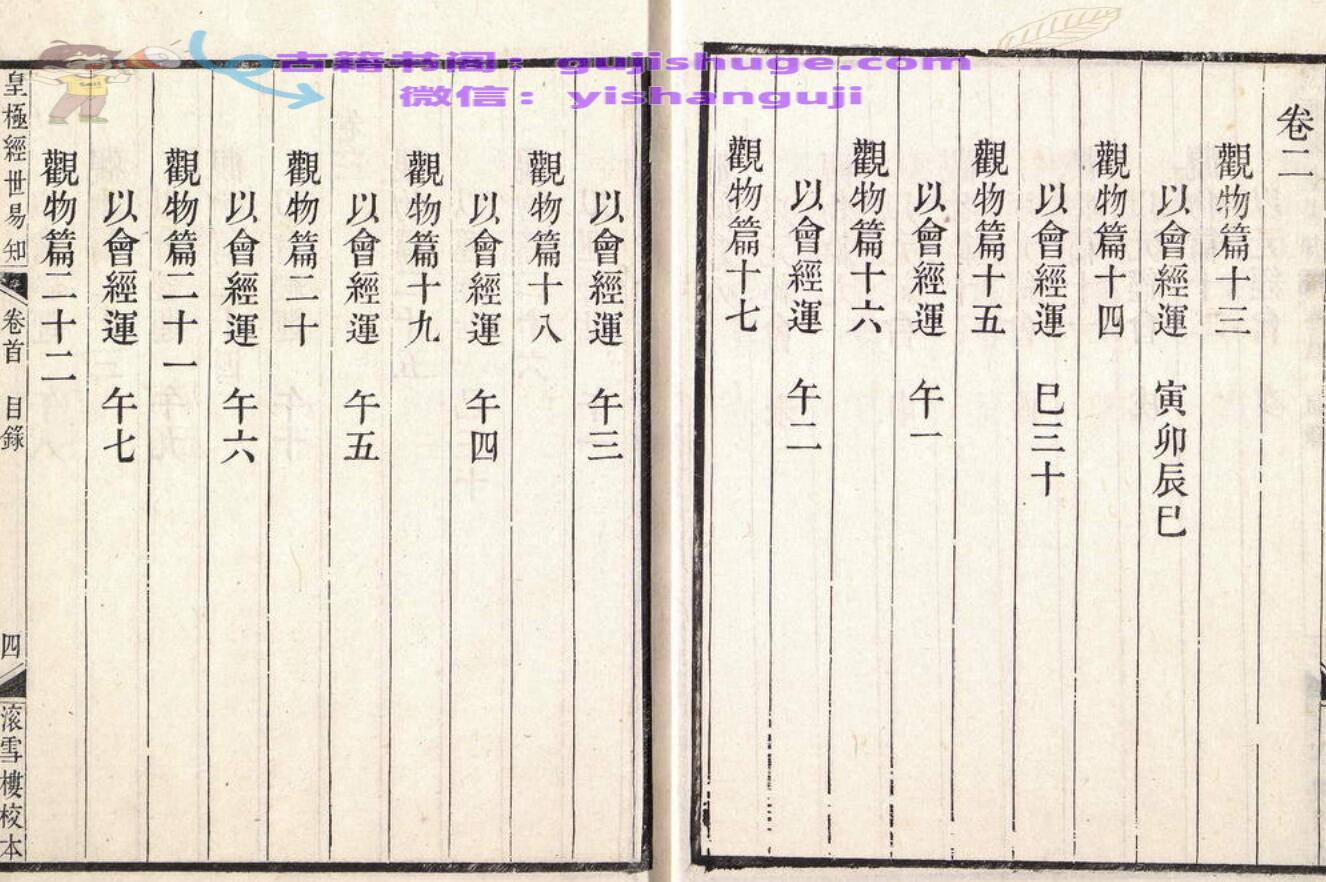 卷二
觀物篇十三
以會經運　寅卯辰巳
觀物篇十四
以會經運　巳三十
觀物篇十五
以會經運　午一
觀物篇十六
以會經運　午二
觀物篇十七
以會經運　午三
觀物篇十八
以會經運　午四
觀物篇十九
以會經運　午五
觀物篇二十
以會經運　午六
觀物篇二十一
以會經運　午七
觀物篇二十二
皇極經世易知　卷首　目錄　四　滚雪樓校本
古籍书阁：gujishuge.com
微信：yishanguji